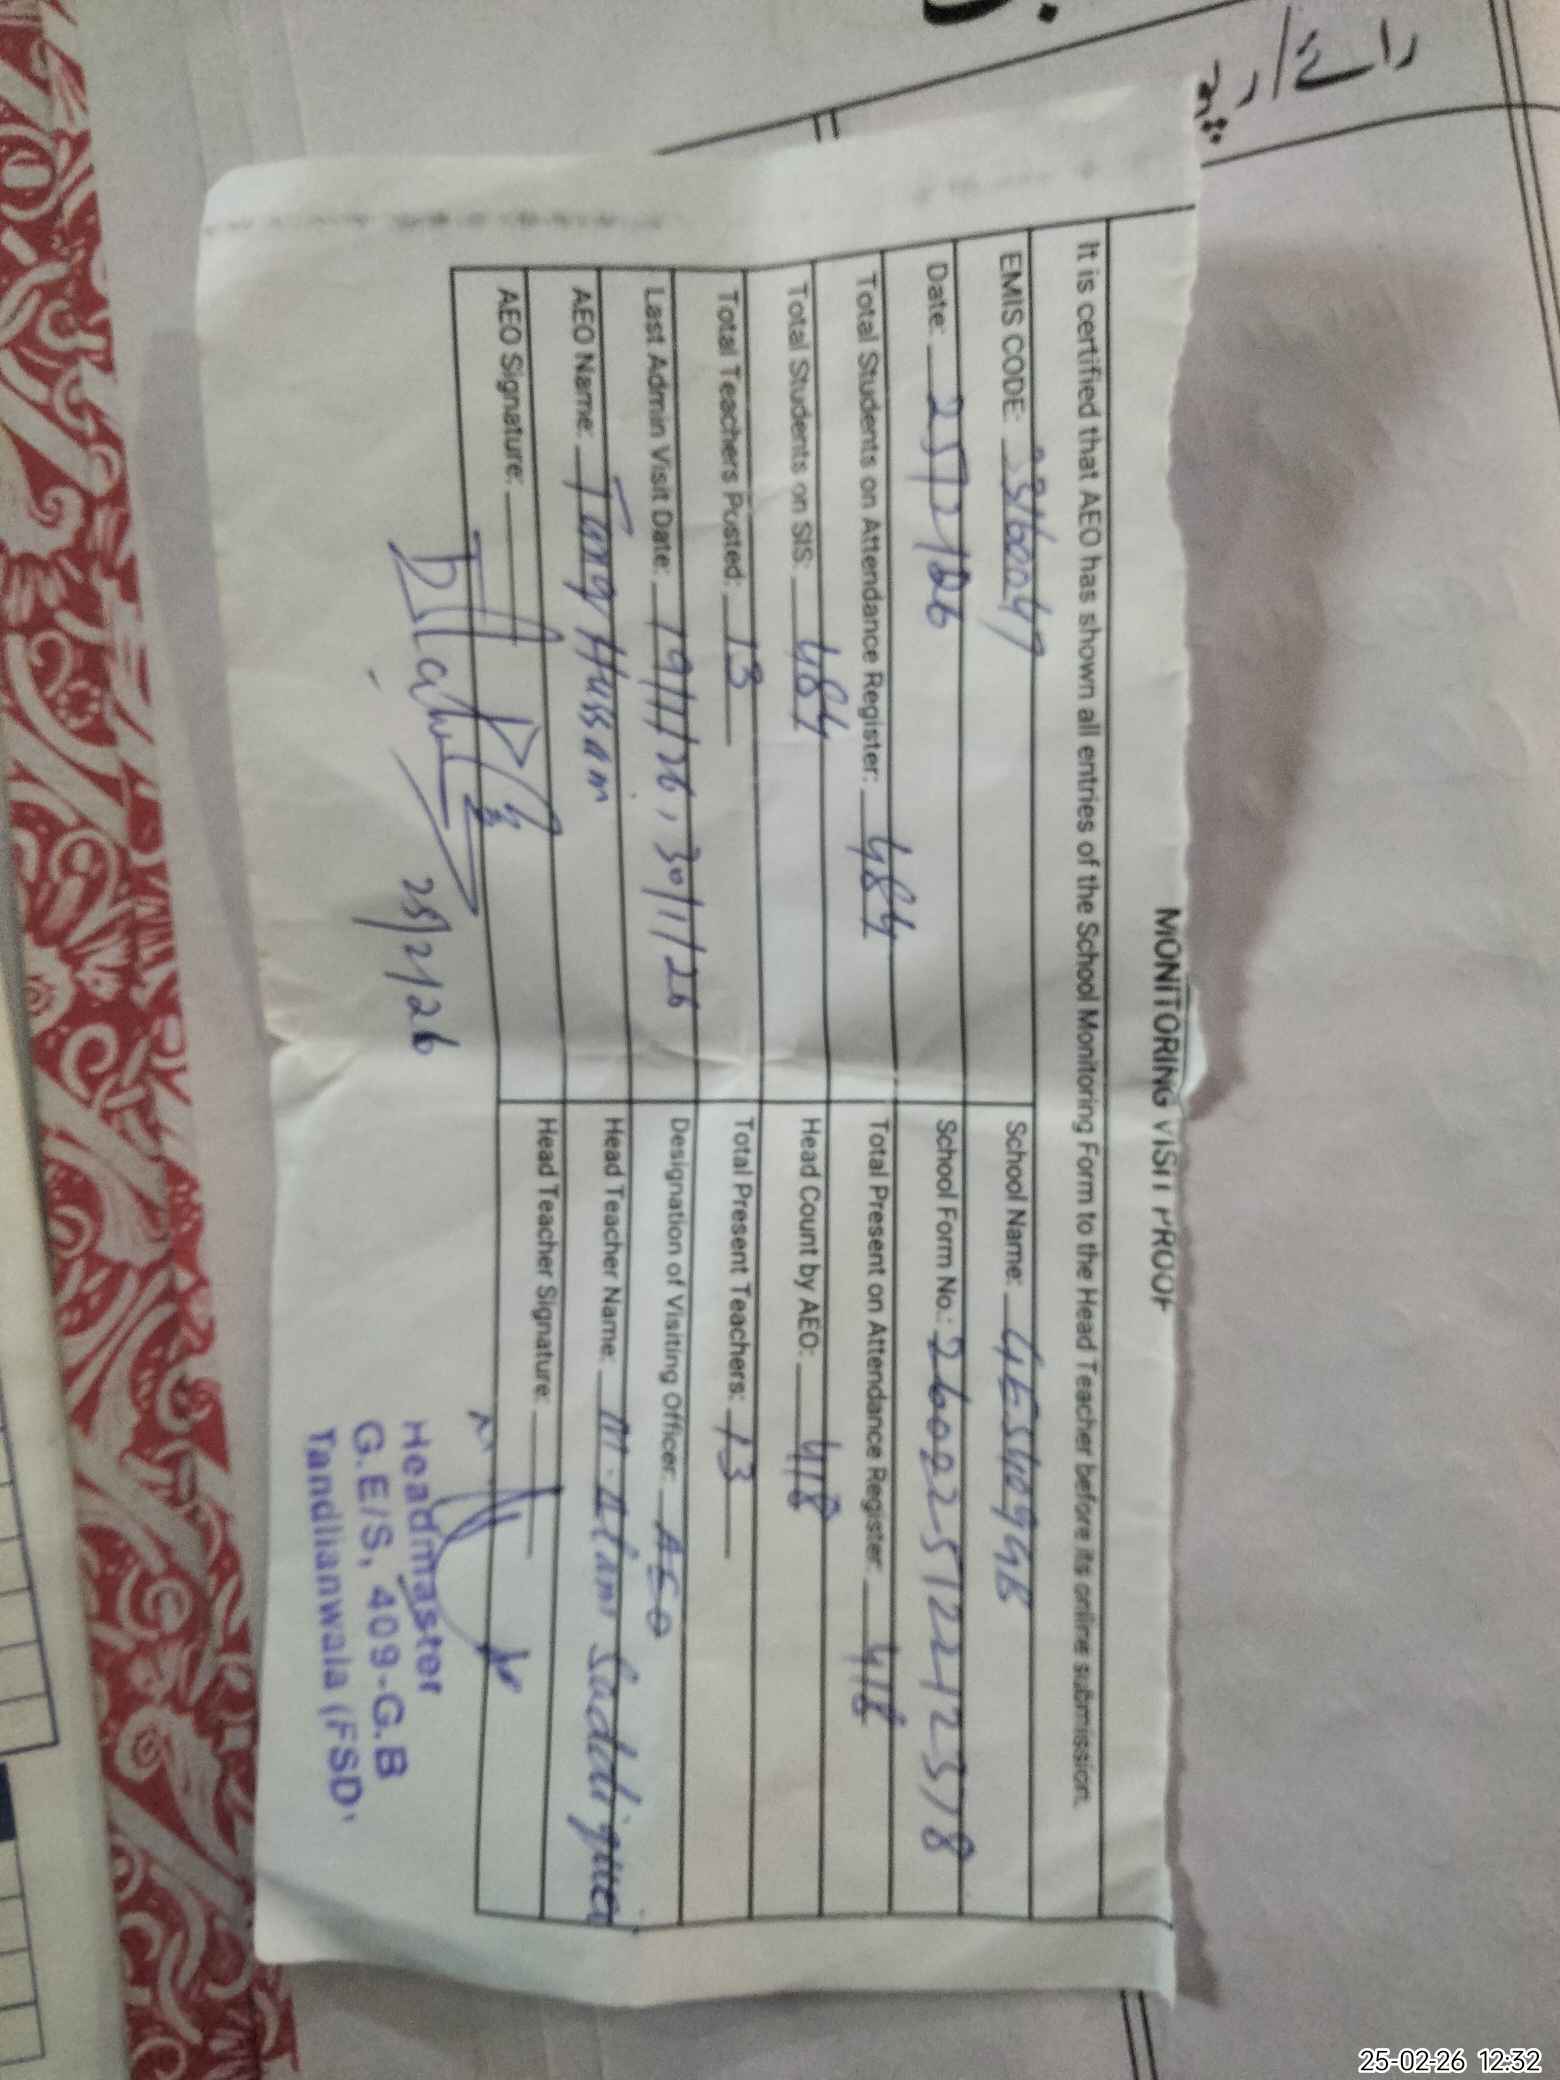 رائے/رپو
MONITORING VISIT PROOF
It is certified that AEO has shown all entries of the School Monitoring Form to the Head Teacher before its online submission.
EMIS CODE: School Name: GES 409 GB
Date: 25/2/26 School Form No.: 260225122412378
Total Students on Attendance Register: 484 Total Present on Attendance Register: 418
Total Students on SIS: 484 Head Count by AEO: 418
Total Teachers Posted: 13 Total Present Teachers: 13
Last Admin Visit Date: 19/1/26, 30/1/26 Designation of Visiting Officer: AEO
AEO Name: Tariq Hussain Head Teacher Name: M. Aslam Saddique
AEO Signature: Head Teacher Signature:
25/2/26
Headmaster
G.E/S, 409-G.B
Tandlianwala (FSD)
25-02-26 12:32